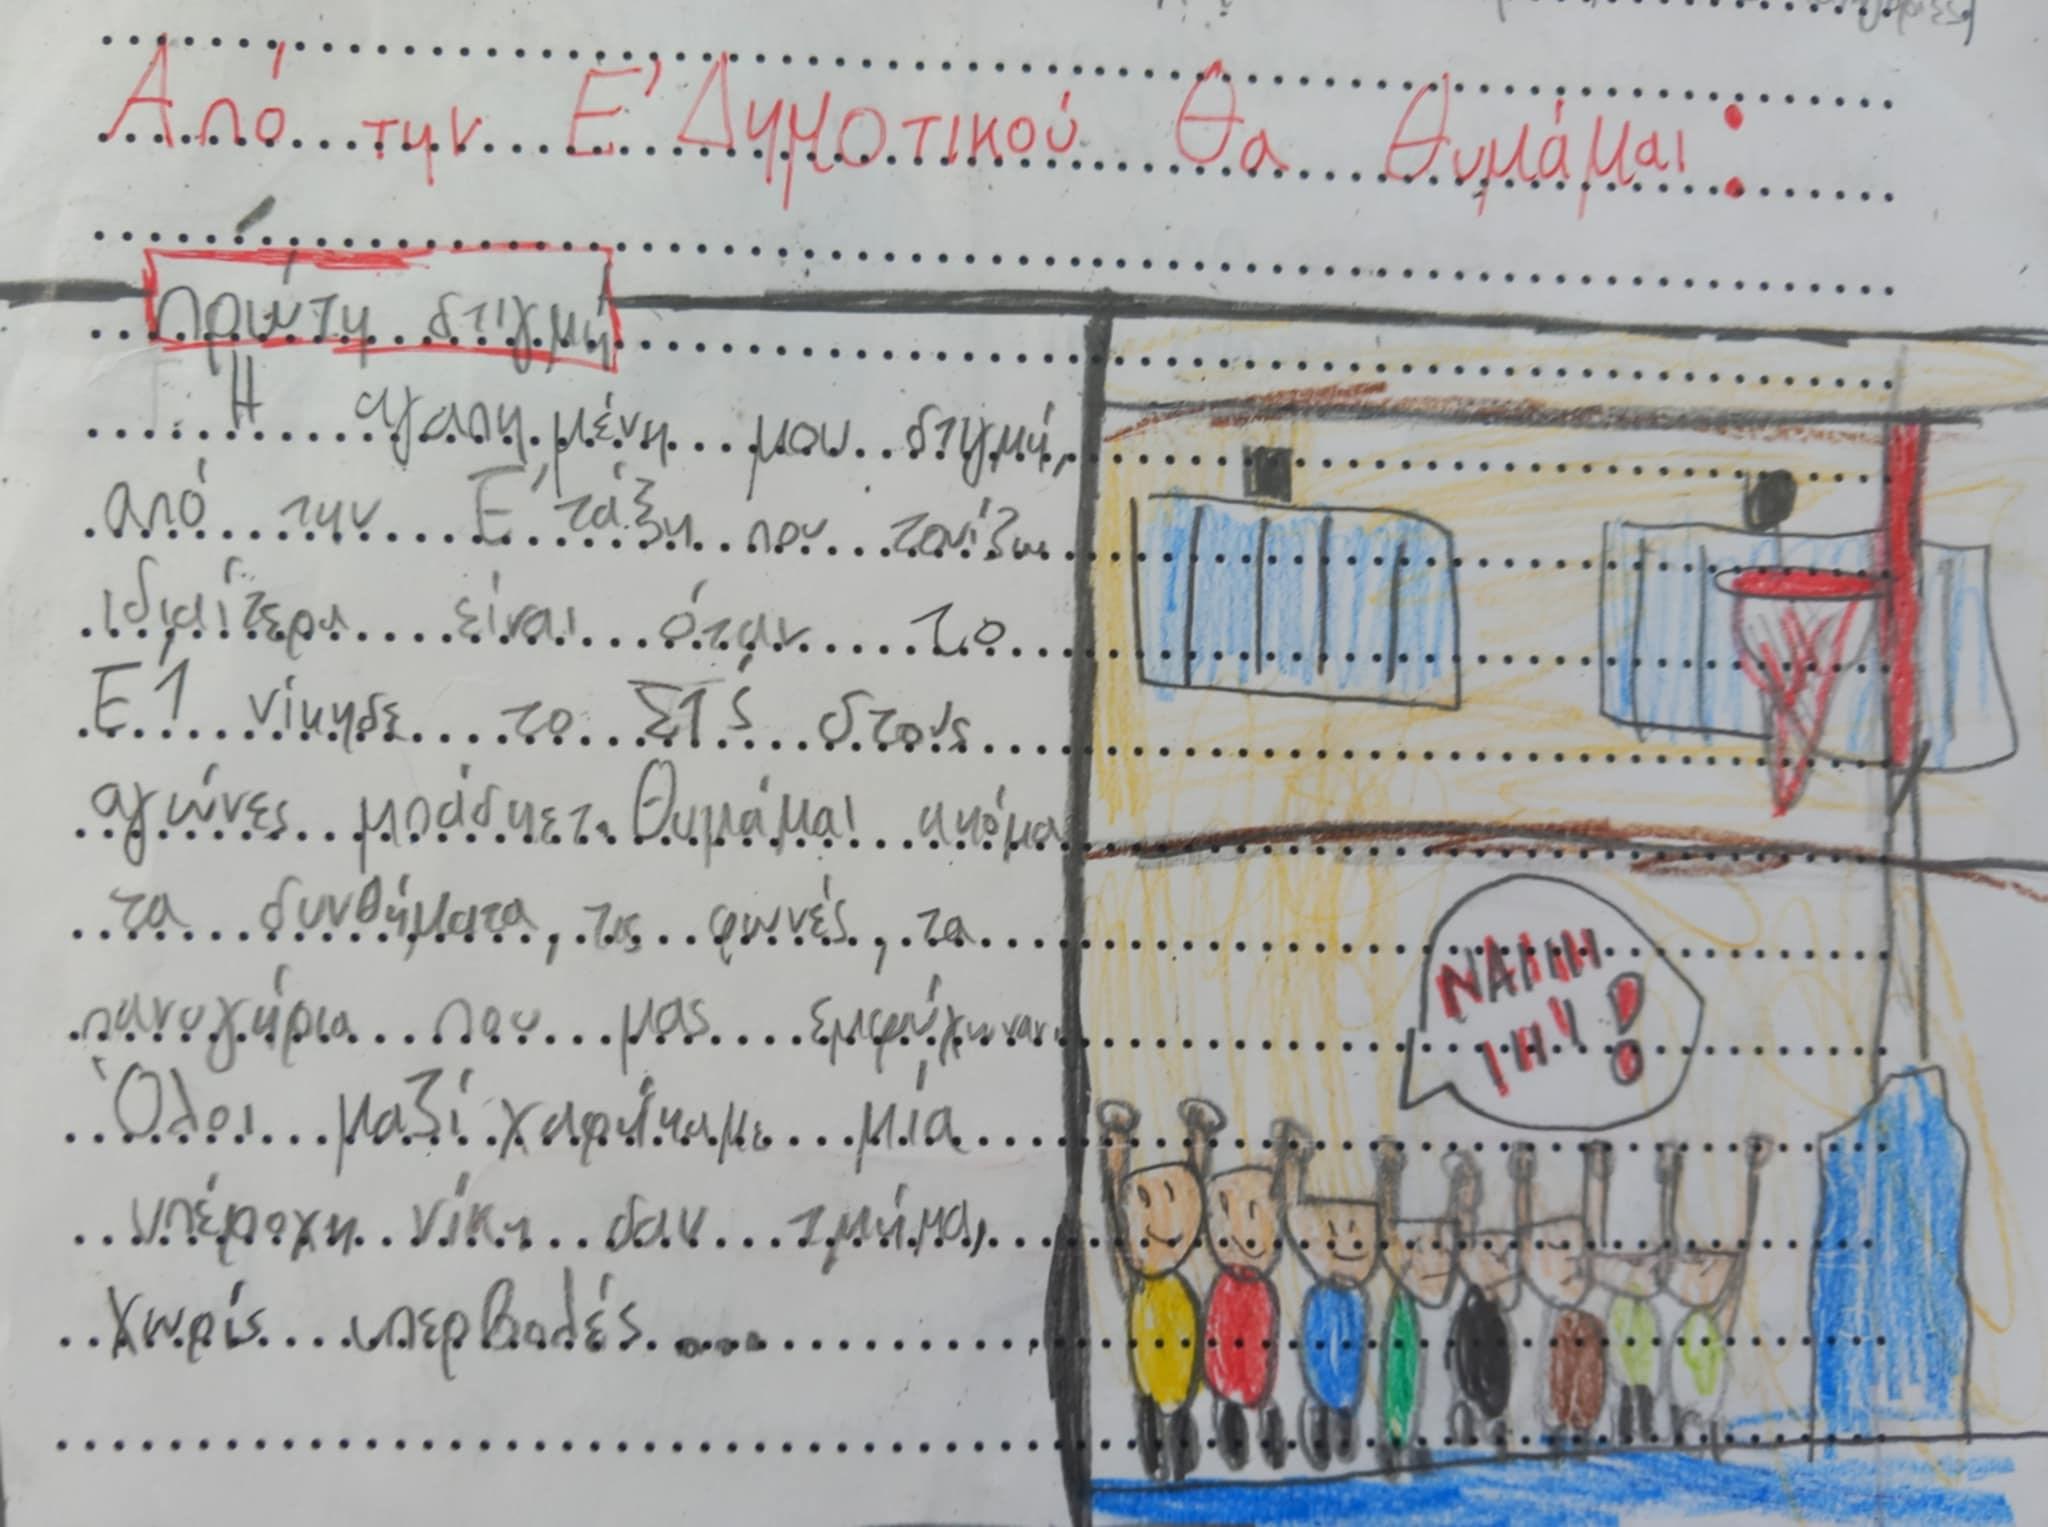 Από την Ε' Δημοτικού θα θυμάμαι:
Πρώτη στιγμή
Η αγαπημένη μου στιγμή,
από την Ε' τάξη που τονίζω
ιδιαίτερα είναι όταν το
Ε'1 νίκησε το ΣΤ'ς στους
αγώνες μπάσκετ. Θυμάμαι ακόμα
τα συνθήματα, τις φωνές, τα
πανυγήρια που μας εμψύχωναν.
Όλοι μαζί χαρήκαμε μία
υπέροχη νίκη σαν τμήμα,
χωρίς υπερβολές...
ΝΑΙΙΙΙΙ
ΙΙΙΙΙ!